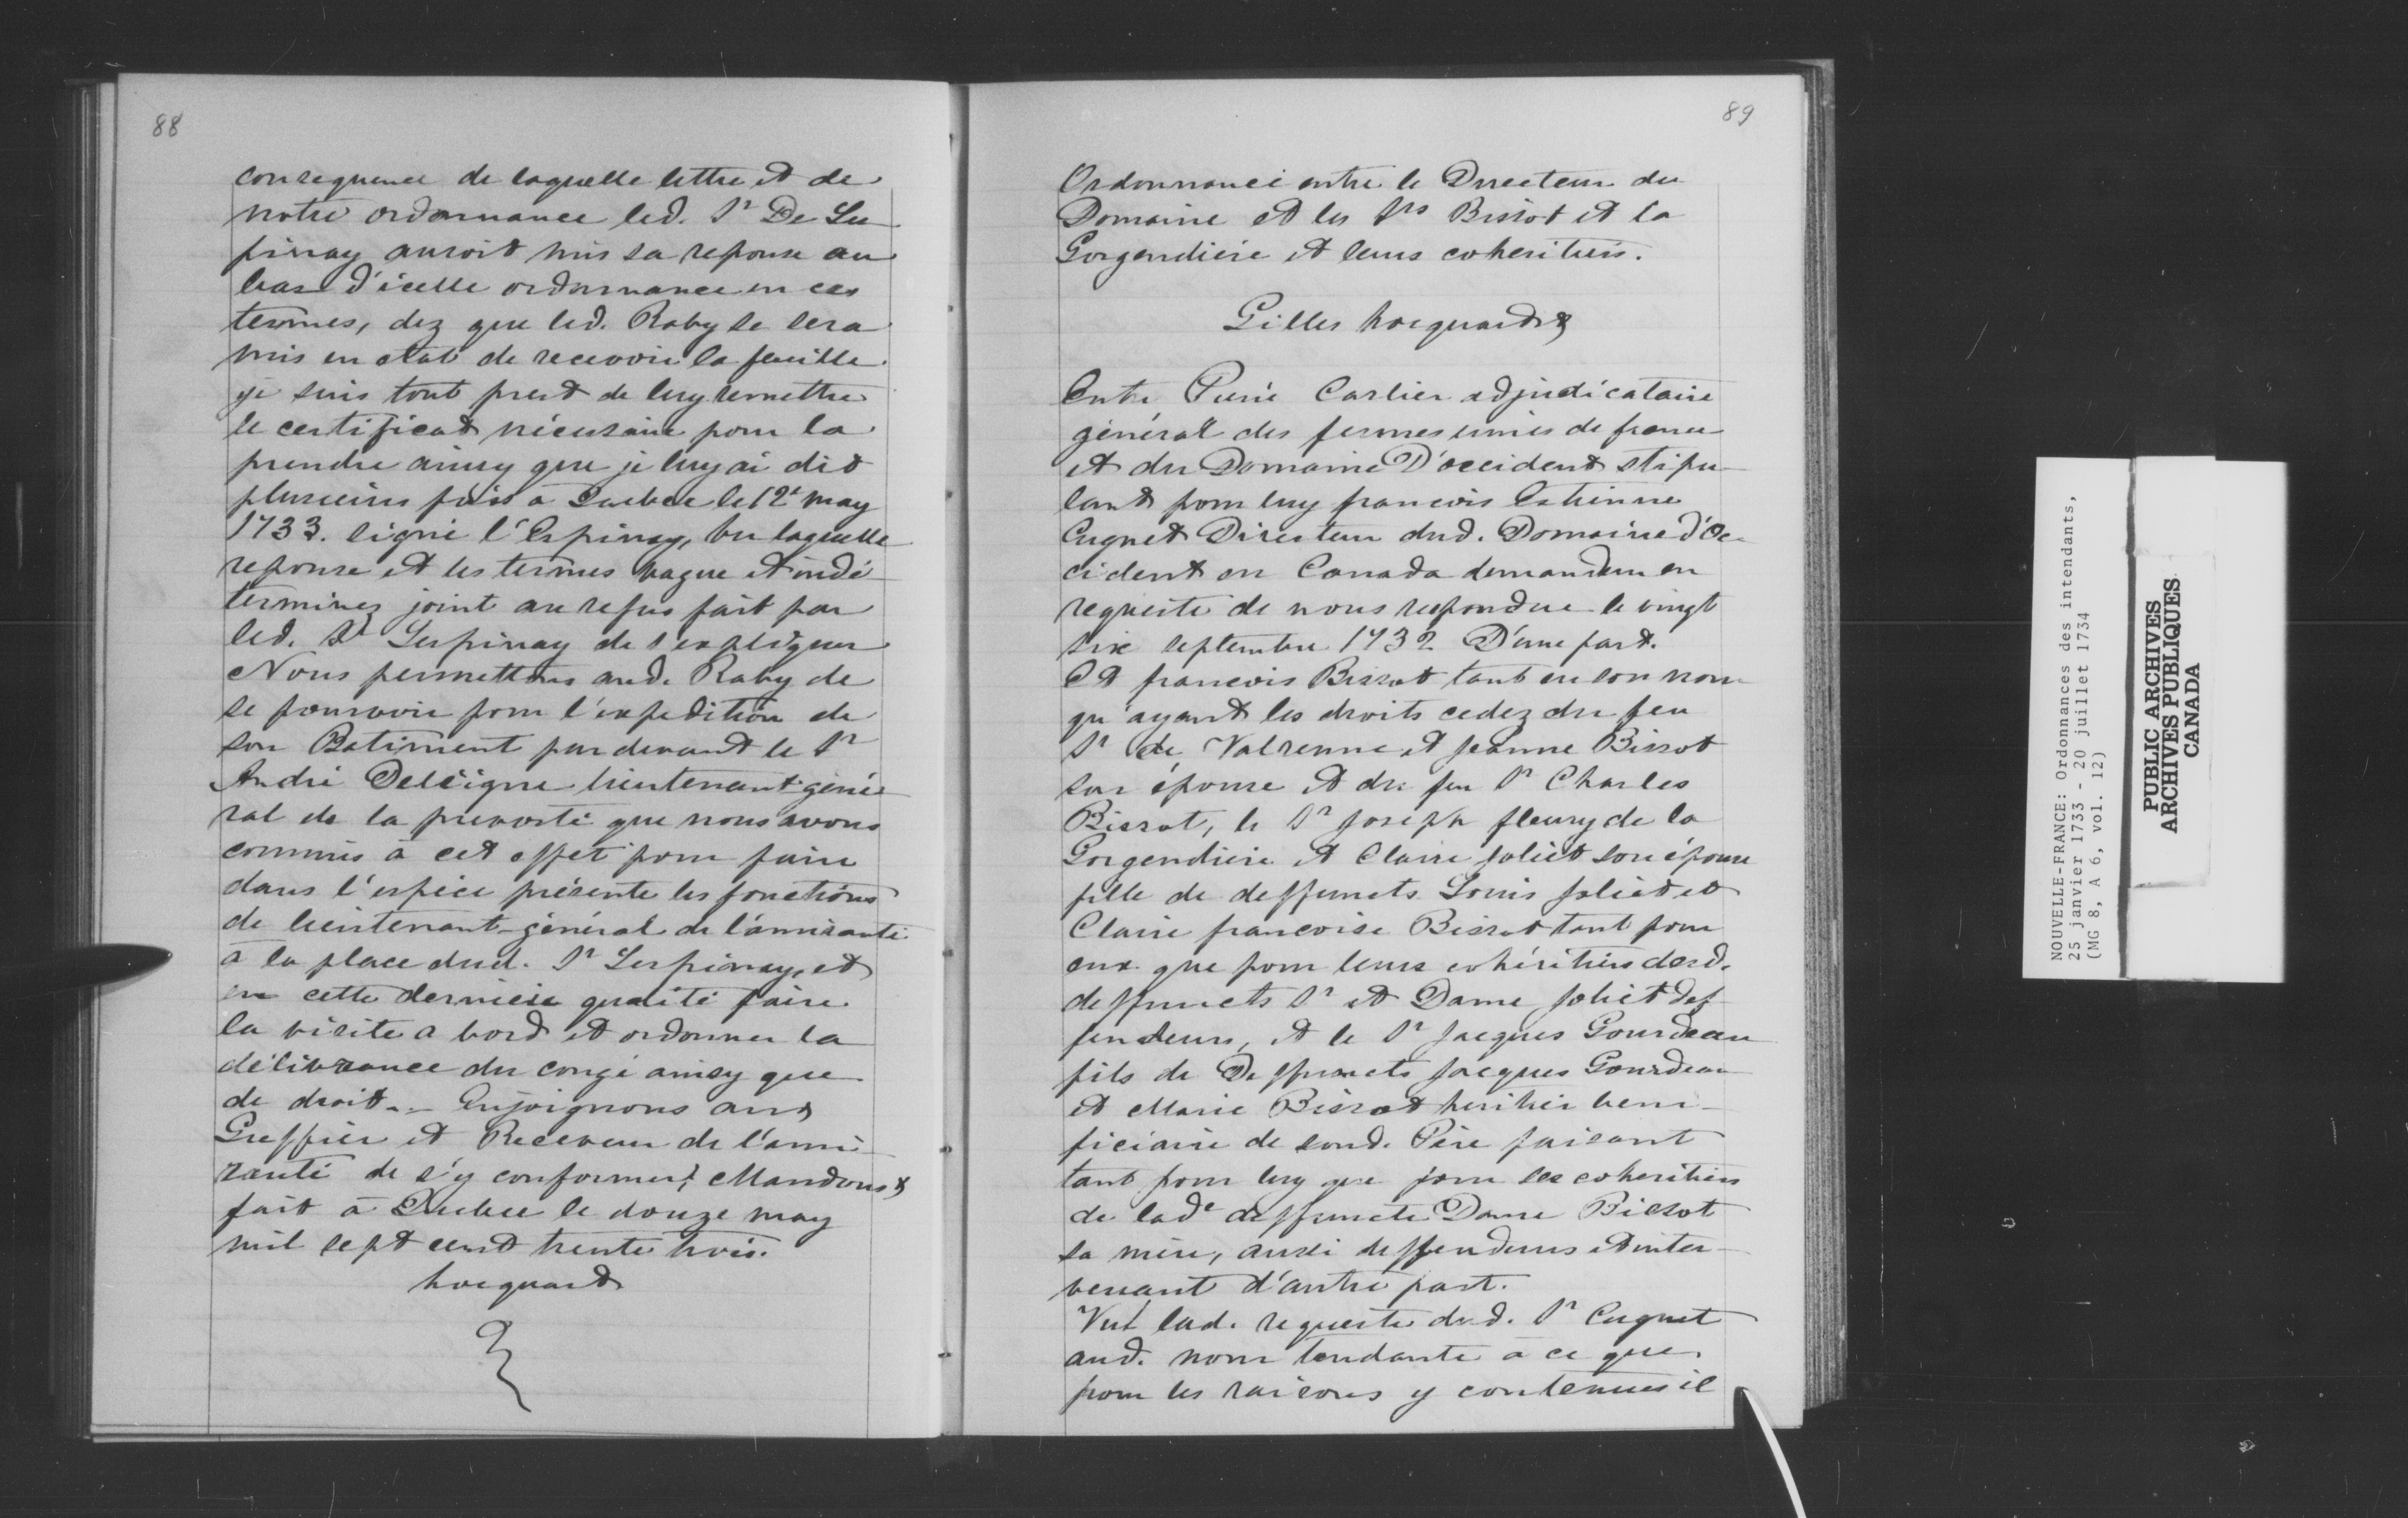 88
consequence de laquelle lettre et de
notre ordonnance led. Sr De Les
pinay auroit mis sa reponse au
bas d'icelle ordonnance en ces
termes, dez que led. Raby se sera
mis en etat de recevoir la feuille
je suis tout prest de luy remettre
le certificat nécessaire pour la
prendre ainsy que je luy ai dit
plusieurs fois à Quebec le 12e may
1733. signé l'Espinay, vu laquelle
reponse et les termes vague et indé
terminez joint au refus fait par
led. Sr Lespinay de s'expliquer
Nous permettons aud. Raby de
se pourvoir pour l'expedition de
son Batiment par devant le Sr
André Deleigne lieutenant géné
ral de la prevosté que nous avons
commis à cet effet pour faire
dans l'espèce présente les fonctions
de lieutenant-général de l'amirauté
à la place dud. Sr Lespinay, et
en cette dernière qualité faire
la visite a bord et ordonner la
délivrance du congé ainsy que
de droit. - Enjoignons aux
Greffier et Receveur de l'ami
rauté de s'y conformer; Mandons &
fait à Quebec le douze may
mil sept cent trente trois.
hocquart
89
Ordonnance entre le Directeur du
Domaine et les Srs Bissot et la
Gorgendière et leurs coheritiers.
Gilles hocquart &
Entre Pierre Carlier adjudicataire
général des fermes unies de france
et du Domaine D'occident stipu
lant pour luy francois Estienne
Cugnet Directeur dud. Domaine d'Oc
cident en Canada demandeur en
requeste de nous respondue le vingt
six septembre 1732 D'une part.
Et francois Bissot tant en son nom
qu'ayant les droits cedez du feu
Sr de Valrenne et Jeanne Bissot
son épouse et du feu Sr Charles
Bissot, le Sr Joseph fleury de la
Gorgendière et Claire Joliet son épouse
fille de deffuncts Louis Joliet et
Claire francoise Bissot tant pour
eux que pour leurs cohéritiers desd.
deffuncts Sr et Dame Joliet def
fendeurs, et le Sr Jacques Gourdeau
fils de Deffuncts Jacques Gourdeau
et Marie Bissot heritier bene-
ficiaire de sond. Père faisant
tant pour luy que pour ses coheritiers
de lade deffuncte Dame Bissot
sa mère, aussi deffendeurs et inter-
venant d'autre part.
Vu lad. requeste dud. Sr Cugnet
aud. nom tendante à ce que
pour les raisons y contenues il
NOUVELLE-FRANCE: Ordonnances des intendants,
25 janvier 1733 - 20 juillet 1734
(MG 8, A 6, vol. 12)
PUBLIC ARCHIVES
ARCHIVES PUBLIQUES
CANADA